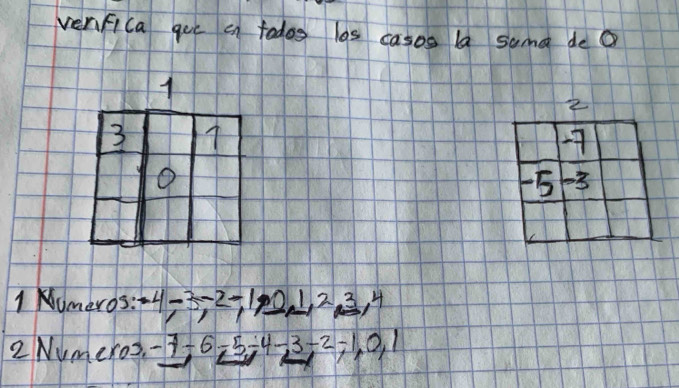 verifica que en todos los casos la suma de 0
1 2
3 1 -7
0 -5 -3
1 Numeros: -4, -3, -2, -1, 0, 1, 2, 3, 4
2 Numeros. -7, -6, -5, -4 -3, -2, -1, 0, 1